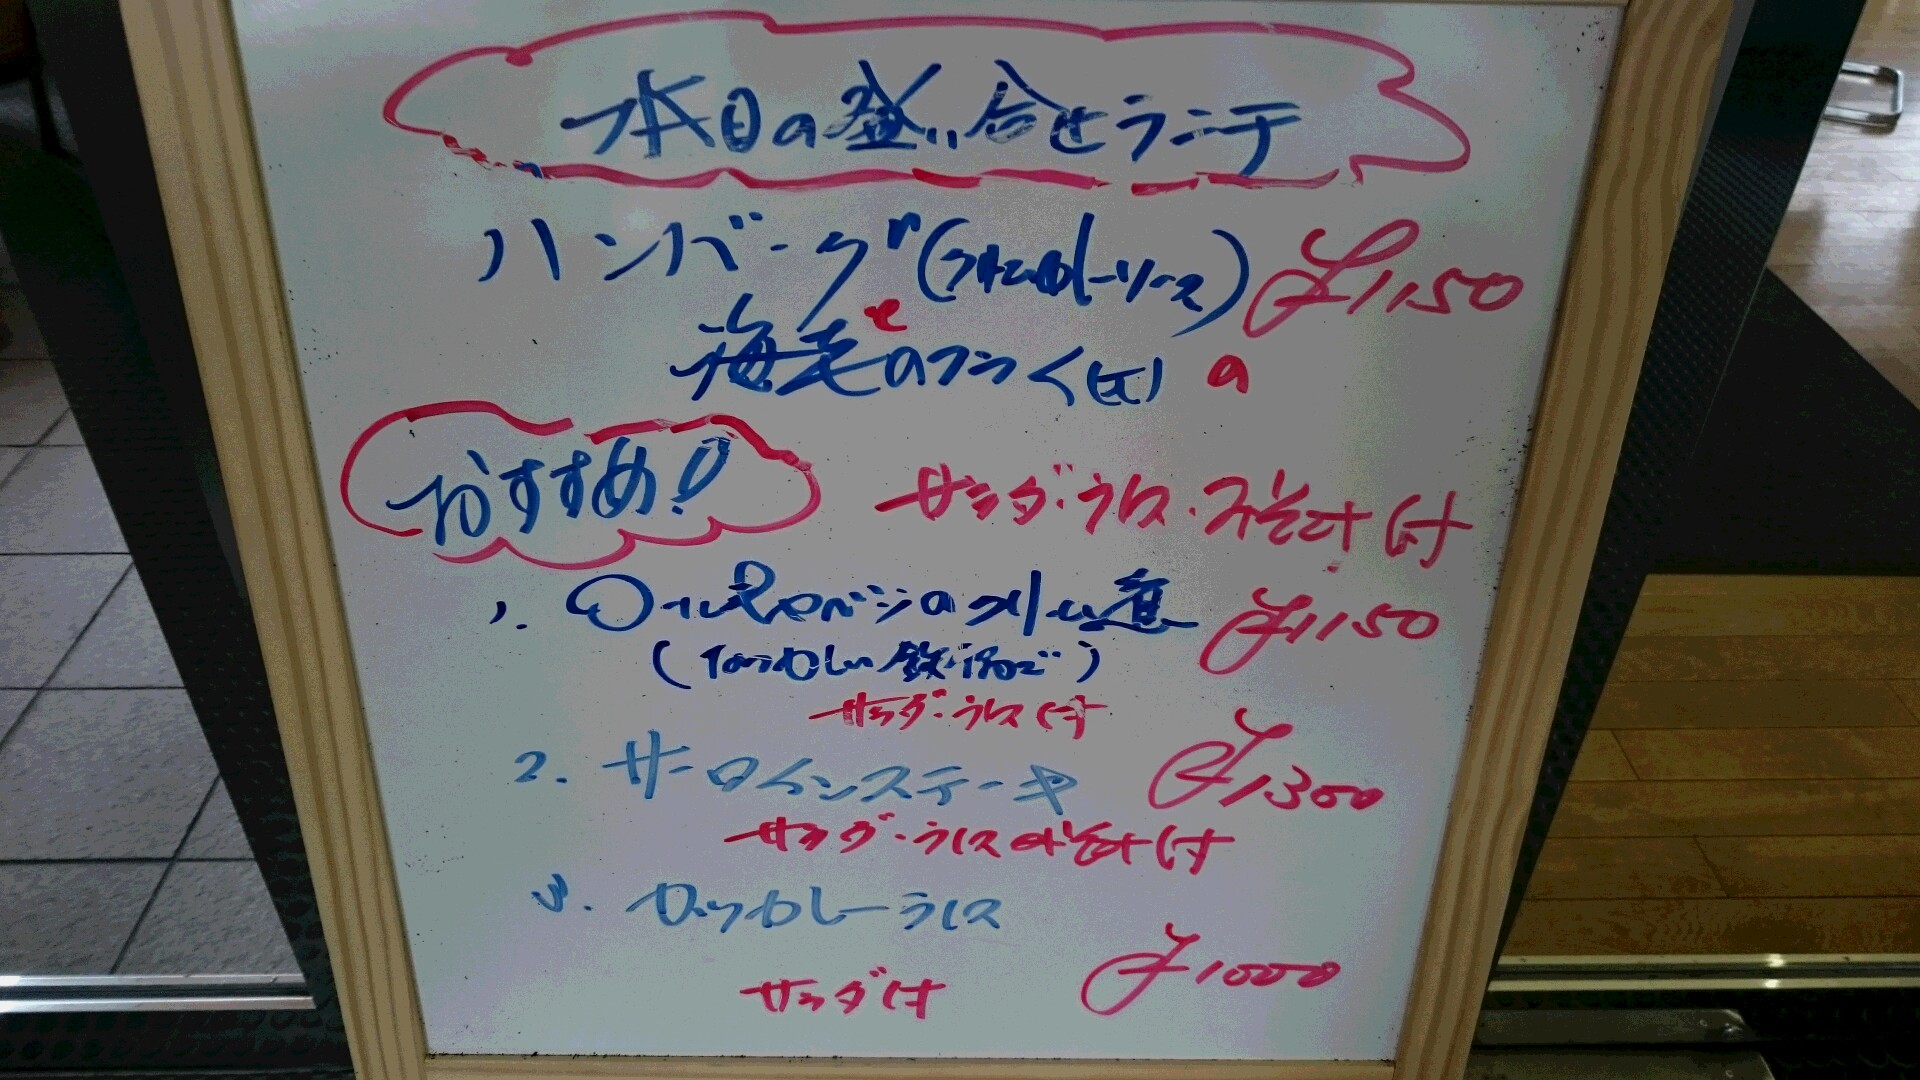 本日の盛り合せランチ
ハンバーグ(クリームカレーソース) ¥1,150
と
海老のフライ(1ヶ) の
おすすめ!
サラダ・ライス・みそ汁付
1. ロールキャベツのクリーム煮 ¥1150
(なつかしい鉄鍋で)
サラダ・ライス付
2. サーロインステーキ ¥1300
サラダ・ライスみそ汁付
3. カツカレーライス
¥1000
サラダ付